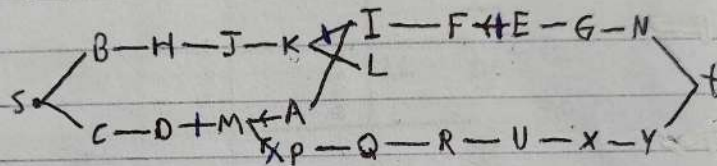 B — H — J — K I — F + E — G — N
L
S t
C — D + M ← A
P — Q — R — U — X — Y